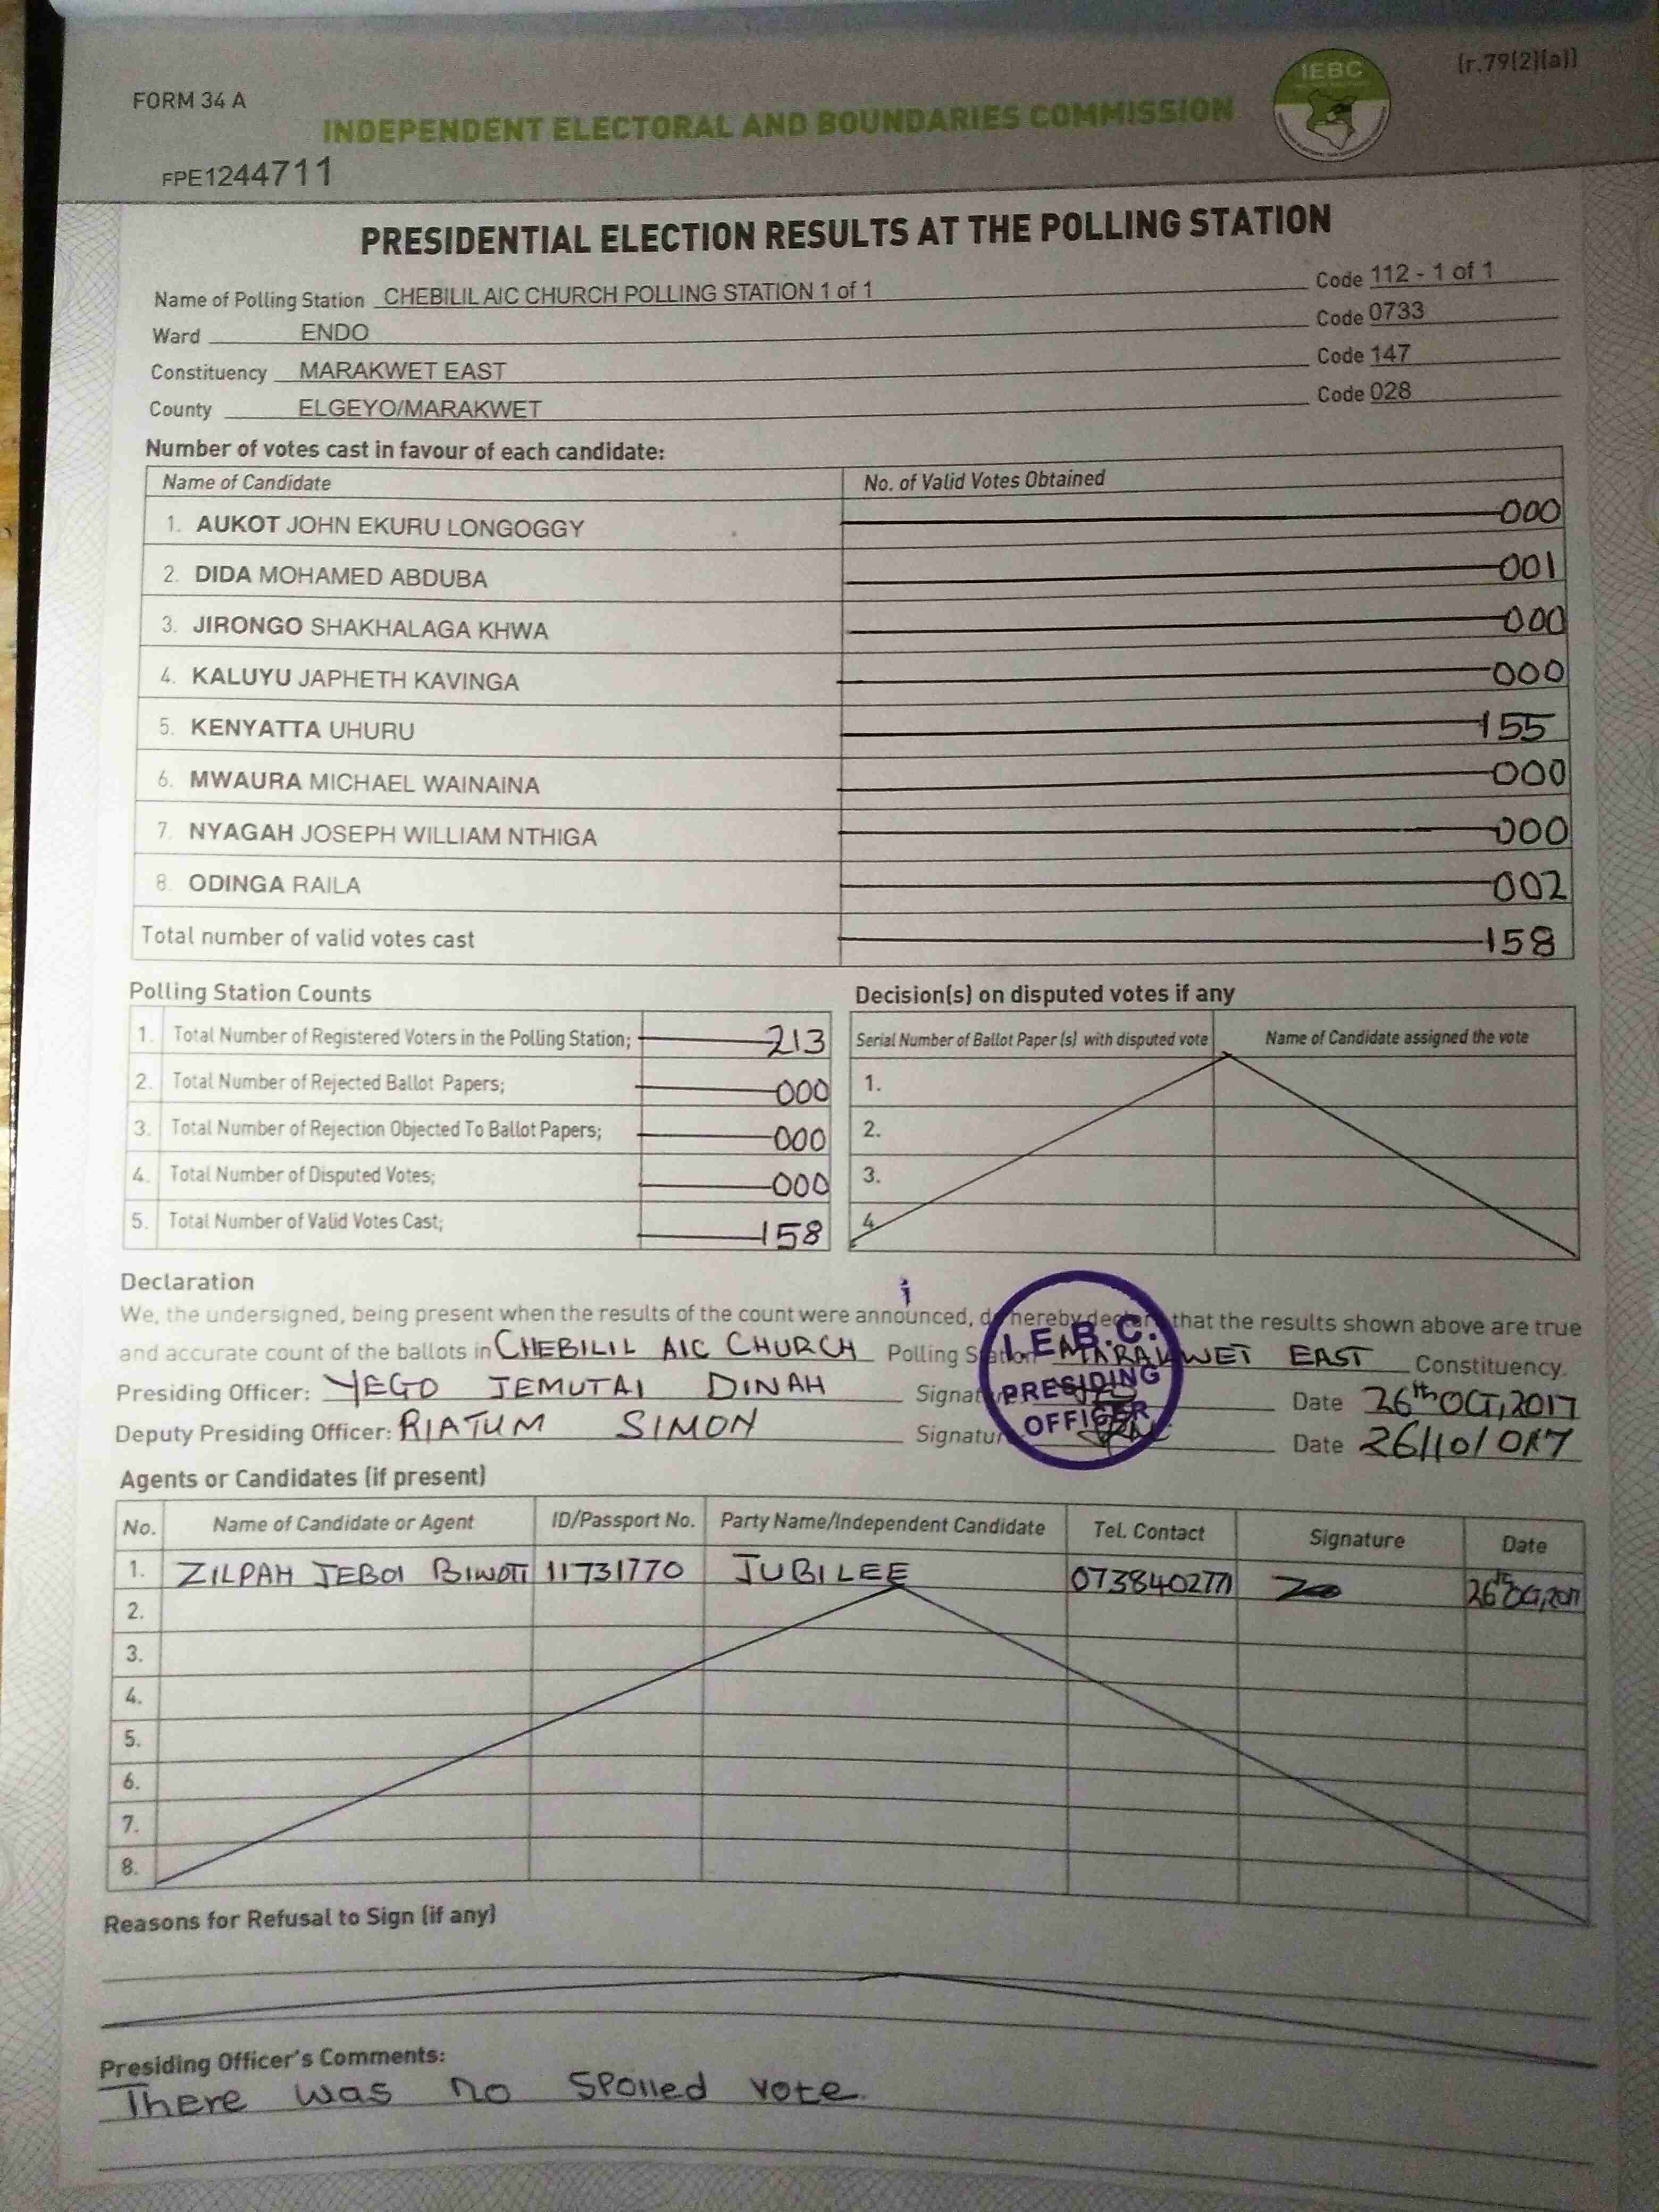 (r.79(2)(a))
FORM 34 A
IEBC
INDEPENDENT ELECTORAL AND BOUNDARIES COMMISSION
FPE1244711
PRESIDENTIAL ELECTION RESULTS AT THE POLLING STATION
Name of Polling Station CHEBILIL AIC CHURCH POLLING STATION 1 of 1 Code 112 - 1 of 1
Ward ENDO Code 0733
Constituency MARAKWET EAST Code 147
County ELGEYO/MARAKWET Code 028
Number of votes cast in favour of each candidate:
Name of Candidate No. of Valid Votes Obtained
1. AUKOT JOHN EKURU LONGOGGY 000
2. DIDA MOHAMED ABDUBA 001
3. JIRONGO SHAKHALAGA KHWA 000
4. KALUYU JAPHETH KAVINGA 000
5. KENYATTA UHURU 155
6. MWAURA MICHAEL WAINAINA 000
7. NYAGAH JOSEPH WILLIAM NTHIGA 000
8. ODINGA RAILA 002
Total number of valid votes cast 158
Polling Station Counts
1. Total Number of Registered Voters in the Polling Station; 213
2. Total Number of Rejected Ballot Papers; 000
3. Total Number of Rejection Objected To Ballot Papers; 000
4. Total Number of Disputed Votes; 000
5. Total Number of Valid Votes Cast; 158
Decision(s) on disputed votes if any
Serial Number of Ballot Paper (s) with disputed vote Name of Candidate assigned the vote
1.
2.
3.
4.
Declaration
We, the undersigned, being present when the results of the count were announced, do hereby declare that the results shown above are true
and accurate count of the ballots in CHEBILIL AIC CHURCH Polling Station MARAKWET EAST Constituency.
Presiding Officer: YEGO JEMUTAI DINAH Signature Date 26th OCT, 2017
Deputy Presiding Officer: RIATUM SIMON Signature Date 26/10/
I.E.B.C.
PRESIDING
OFFICER
Agents or Candidates (if present)
No. Name of Candidate or Agent ID/Passport No. Party Name/Independent Candidate Tel. Contact Signature Date
1. ZILPAH JEBOI BIWOTT 11731770 JUBILEE 0738402771 26th OCT, 2017
2.
3.
4.
5.
6.
7.
8.
Reasons for Refusal to Sign (if any)
Presiding Officer's Comments:
There was no spoiled vote.